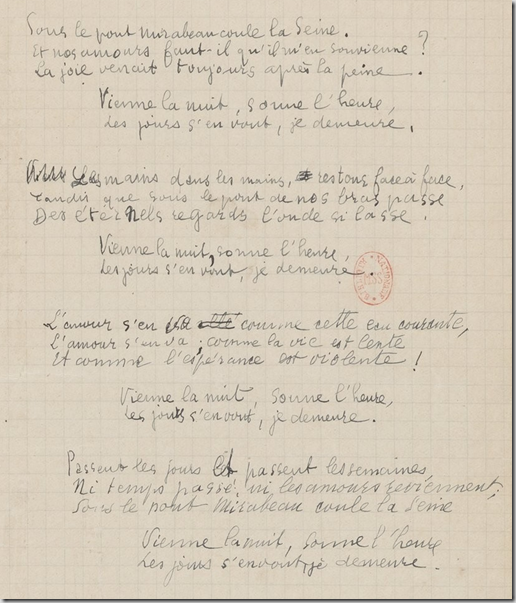 Sous le pont mirabeau coule la Seine.
Et nos amours faut-il qu'il m'en souvienne ?
La joie venait toujours après la peine.
Vienne la nuit, sonne l'heure,
Les jours s'en vont, je demeure.
Les mains dans les mains, restons face à face,
Tandis que sous le pont de nos bras passe
Des éternels regards l'onde si lasse.
Vienne la nuit, sonne l'heure,
Les jours s'en vont, je demeure.
L'amour s'en va comme cette eau courante,
L'amour s'en va, comme la vie est lente
Et comme l'espérance est violente !
Vienne la nuit, sonne l'heure,
Les jours s'en vont, je demeure.
Passent les jours et passent les semaines,
Ni temps passé, ni les amours reviennent,
Sous le pont Mirabeau coule la Seine
Vienne la nuit, sonne l'heure
Les jours s'en vont, je demeure.